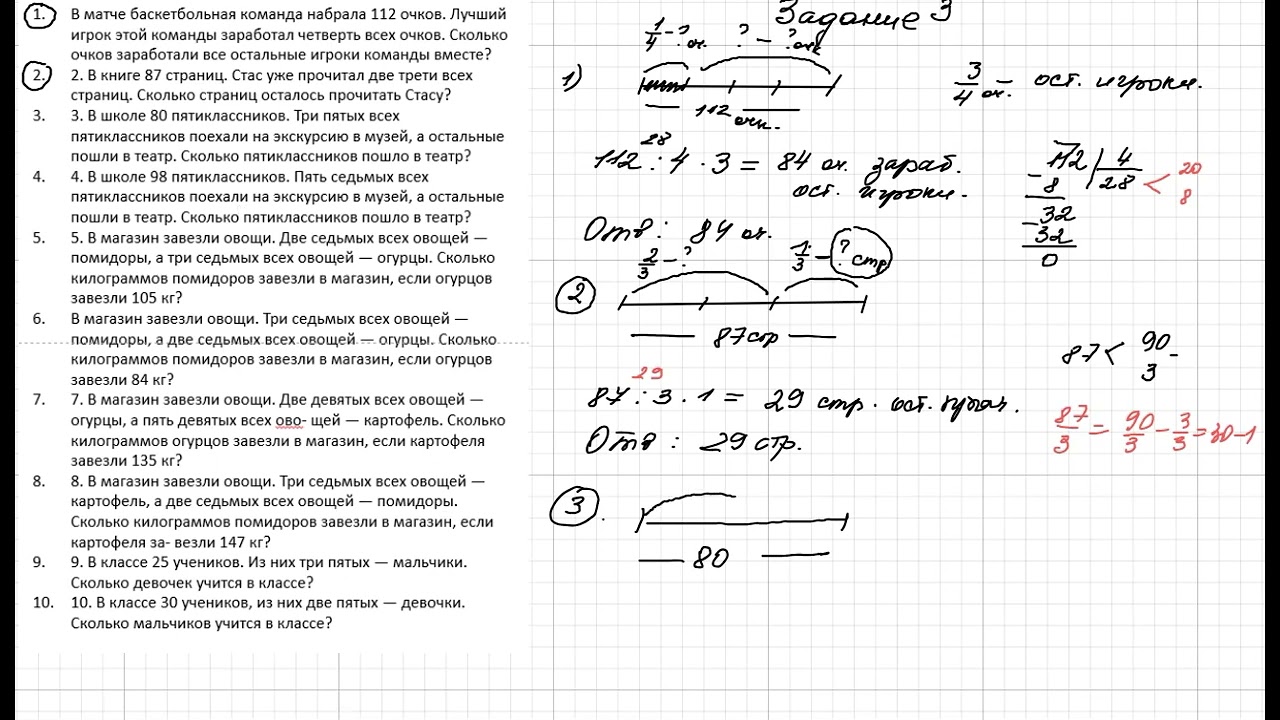 1. В матче баскетбольная команда набрала 112 очков. Лучший
игрок этой команды заработал четверть всех очков. Сколько
очков заработали все остальные игроки команды вместе?
2. 2. В книге 87 страниц. Стас уже прочитал две трети всех
страниц. Сколько страниц осталось прочитать Стасу?
3. 3. В школе 80 пятиклассников. Три пятых всех
пятиклассников поехали на экскурсию в музей, а остальные
пошли в театр. Сколько пятиклассников пошло в театр?
4. 4. В школе 98 пятиклассников. Пять седьмых всех
пятиклассников поехали на экскурсию в музей, а остальные
пошли в театр. Сколько пятиклассников пошло в театр?
5. 5. В магазин завезли овощи. Две седьмых всех овощей —
помидоры, а три седьмых всех овощей — огурцы. Сколько
килограммов помидоров завезли в магазин, если огурцов
завезли 105 кг?
6. В магазин завезли овощи. Три седьмых всех овощей —
помидоры, а две седьмых всех овощей — огурцы. Сколько
килограммов помидоров завезли в магазин, если огурцов
завезли 84 кг?
7. 7. В магазин завезли овощи. Две девятых всех овощей —
огурцы, а пять девятых всех ово- щей — картофель. Сколько
килограммов огурцов завезли в магазин, если картофеля
завезли 135 кг?
8. 8. В магазин завезли овощи. Три седьмых всех овощей —
картофель, а две седьмых всех овощей — помидоры.
Сколько килограммов помидоров завезли в магазин, если
картофеля за- везли 147 кг?
9. 9. В классе 25 учеников. Из них три пятых — мальчики.
Сколько девочек учится в классе?
10. 10. В классе 30 учеников, из них две пятых — девочки.
Сколько мальчиков учится в классе?
Задание 3
1/4 - ? оч. ? - ? очк
1)
112 очк.
3/4 оч. — ост. игроки.
28
112 : 4 · 3 = 84 оч. зараб.
ост. игроки.
112 | 4
- 8 28 < 20
8
- 32
32
0
Отв : 84 оч.
2/3 - ? 1/3 - ? стр
2
87 стр
87 < 90/3 -
29
87 : 3 · 1 = 29 стр. ост.
87/3 = 90/3 - 3/3 = 30-1
Отв : 29 стр.
3.
80